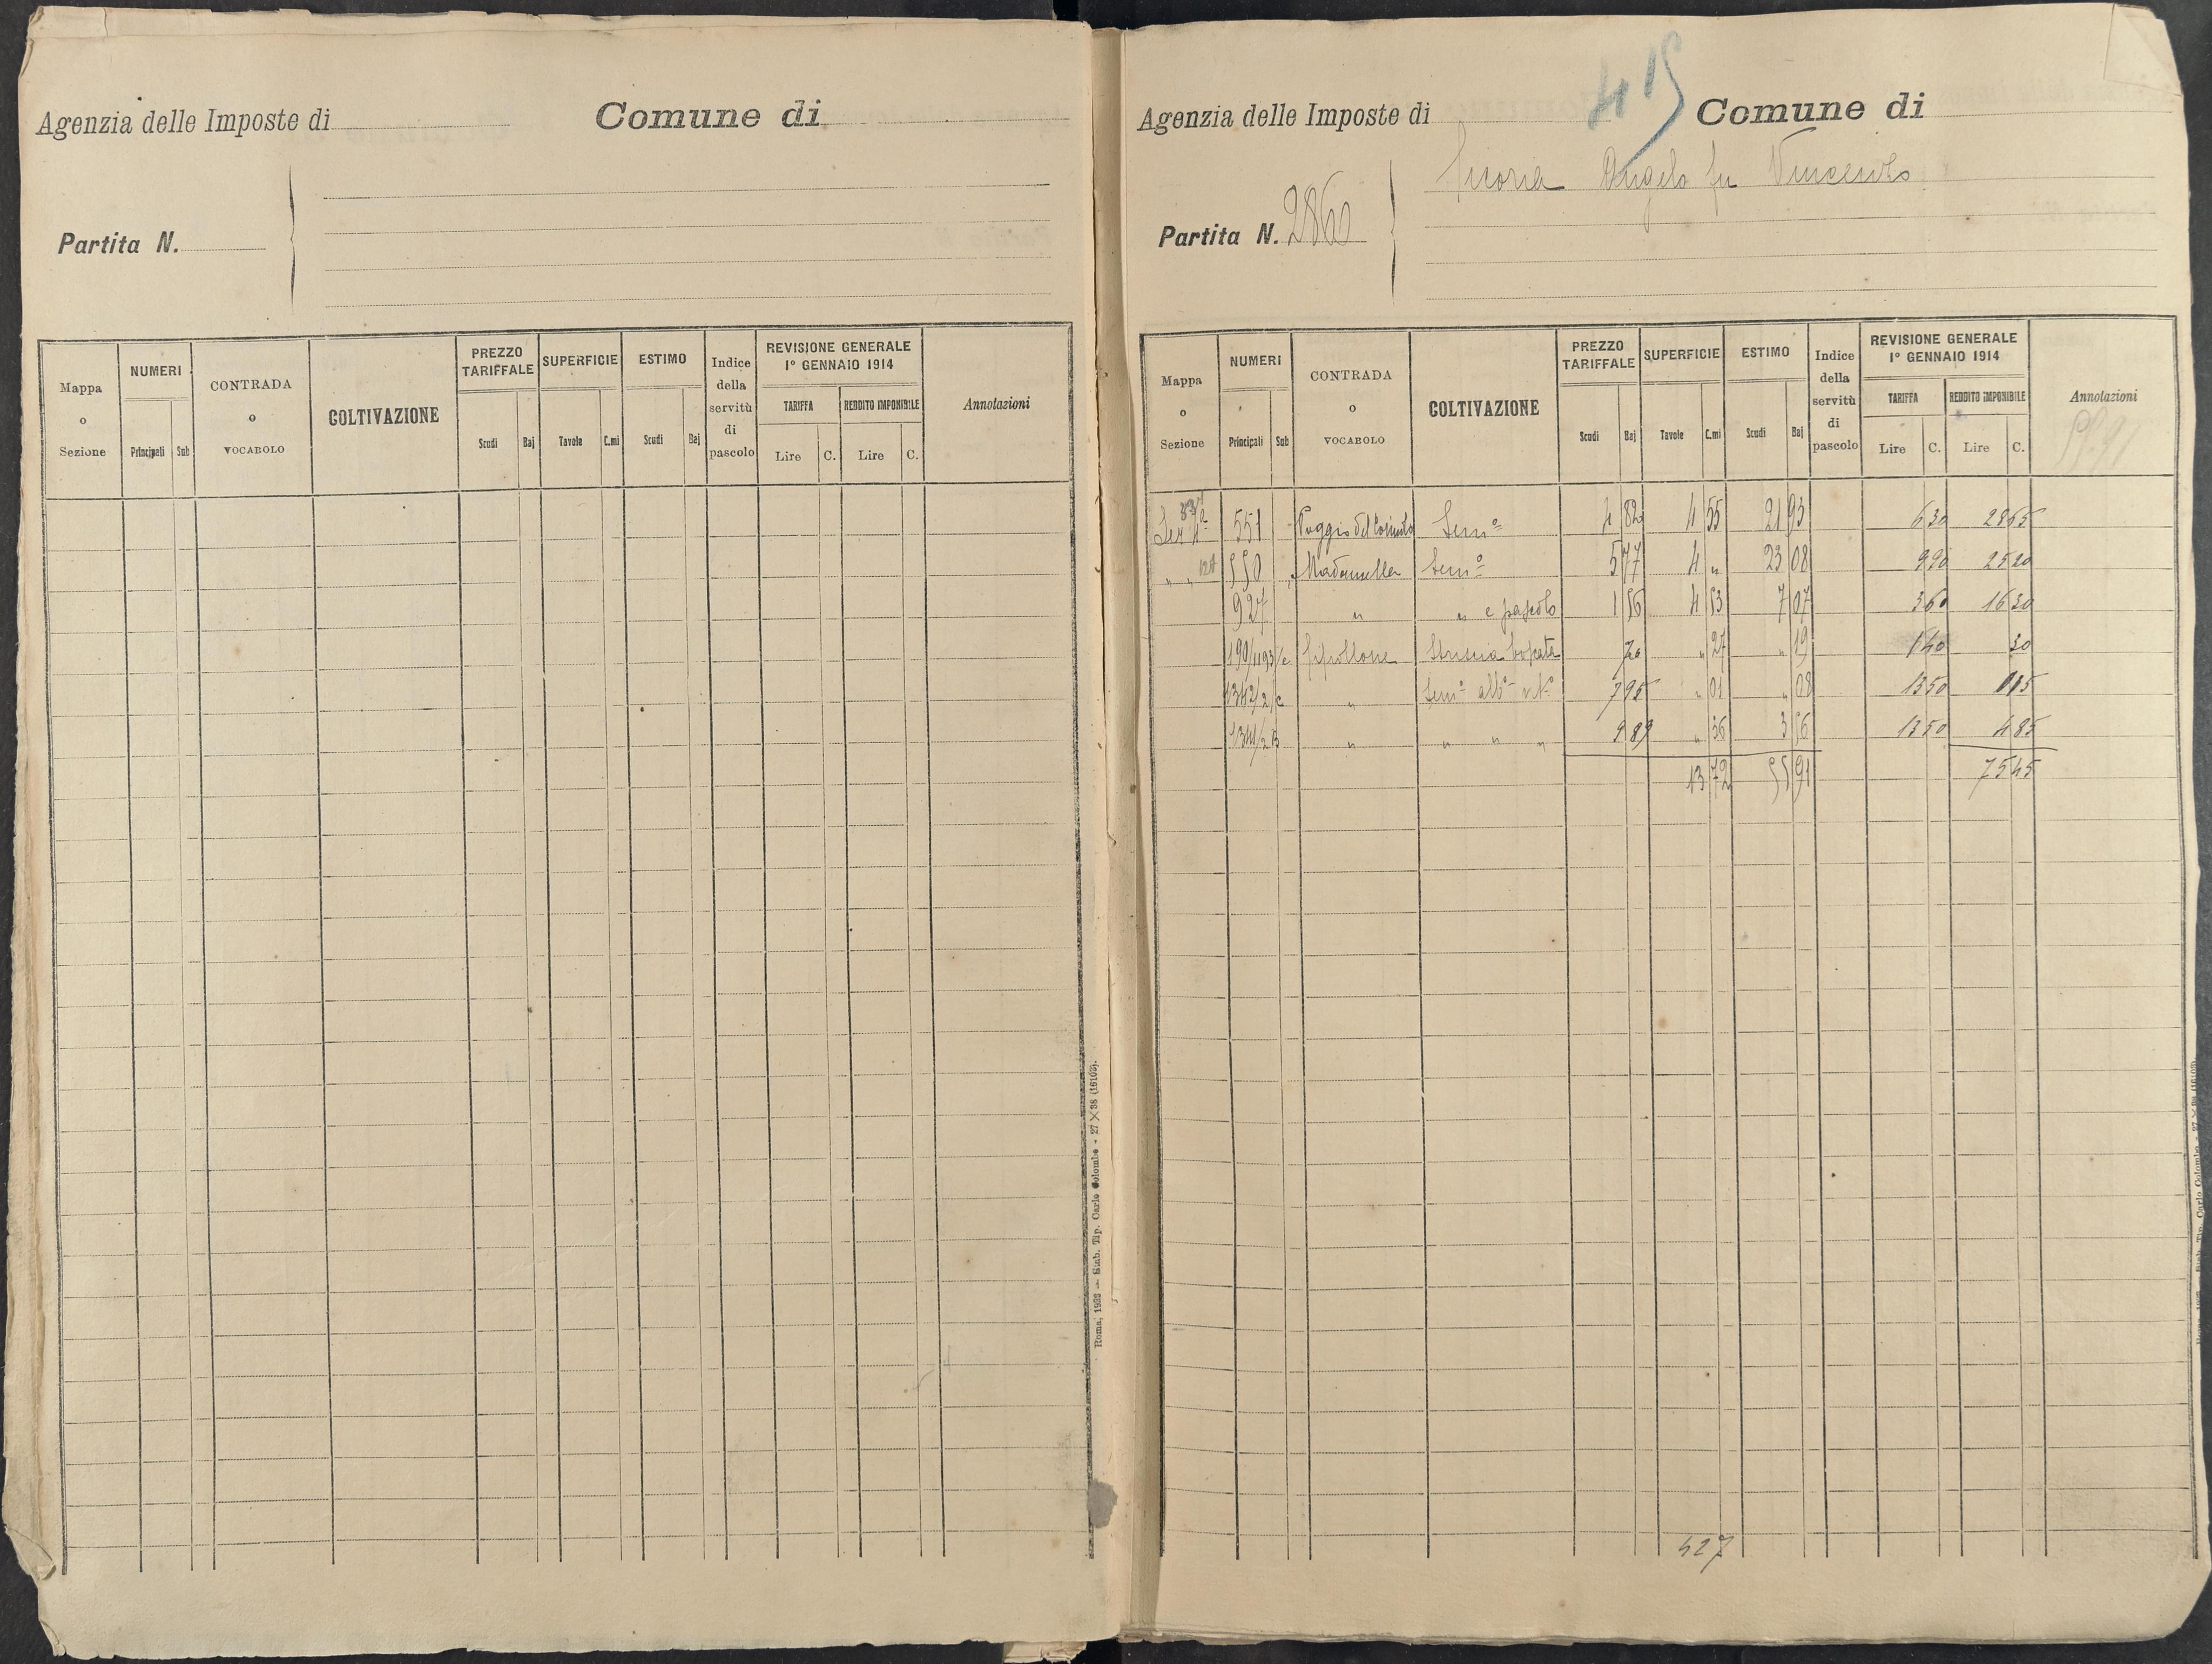 Agenzia delle Imposte di Comune di
Partita N.
Mappa o Sezione
NUMERI
Principali Sub
CONTRADA o VOCABOLO
COLTIVAZIONE
PREZZO TARIFFALE
Scudi Baj
SUPERFICIE
Tavole C.mi
ESTIMO
Scudi Baj
Indice della servitù di pascolo
REVISIONE GENERALE
1° GENNAIO 1914
TARIFFA REDDITO IMPONIBILE
Lire C. Lire C.
Annotazioni
Roma, 1926 — Stab. Tip. Carlo Colombo - 27 × 38 (16103).
415
Agenzia delle Imposte di Comune di
Angelo fu Vincenzo
Partita N. 2860
Mappa o Sezione
NUMERI
Principali Sub
CONTRADA o VOCABOLO
COLTIVAZIONE
PREZZO TARIFFALE
Scudi Baj
SUPERFICIE
Tavole C.mi
ESTIMO
Scudi Baj
Indice della servitù di pascolo
REVISIONE GENERALE
1° GENNAIO 1914
TARIFFA REDDITO IMPONIBILE
Lire C. Lire C.
Annotazioni
55.91
551 Poggio del Semº 4 82 4 55 21 93 6 30 28 65
" " 550 Semº 5 77 4 " 23 08 9 90 25 20
927 " " e pascolo 1 56 4 53 7 07 3 60 16 30
Striscia boscata 70 " 27 " 19 1 40 30
" Semº albº vitº 7 95 " 01 " 08 13 50 15
" " " " 9 89 " 36 3 56 13 50 4 85
13 72 55 91 75 45
427